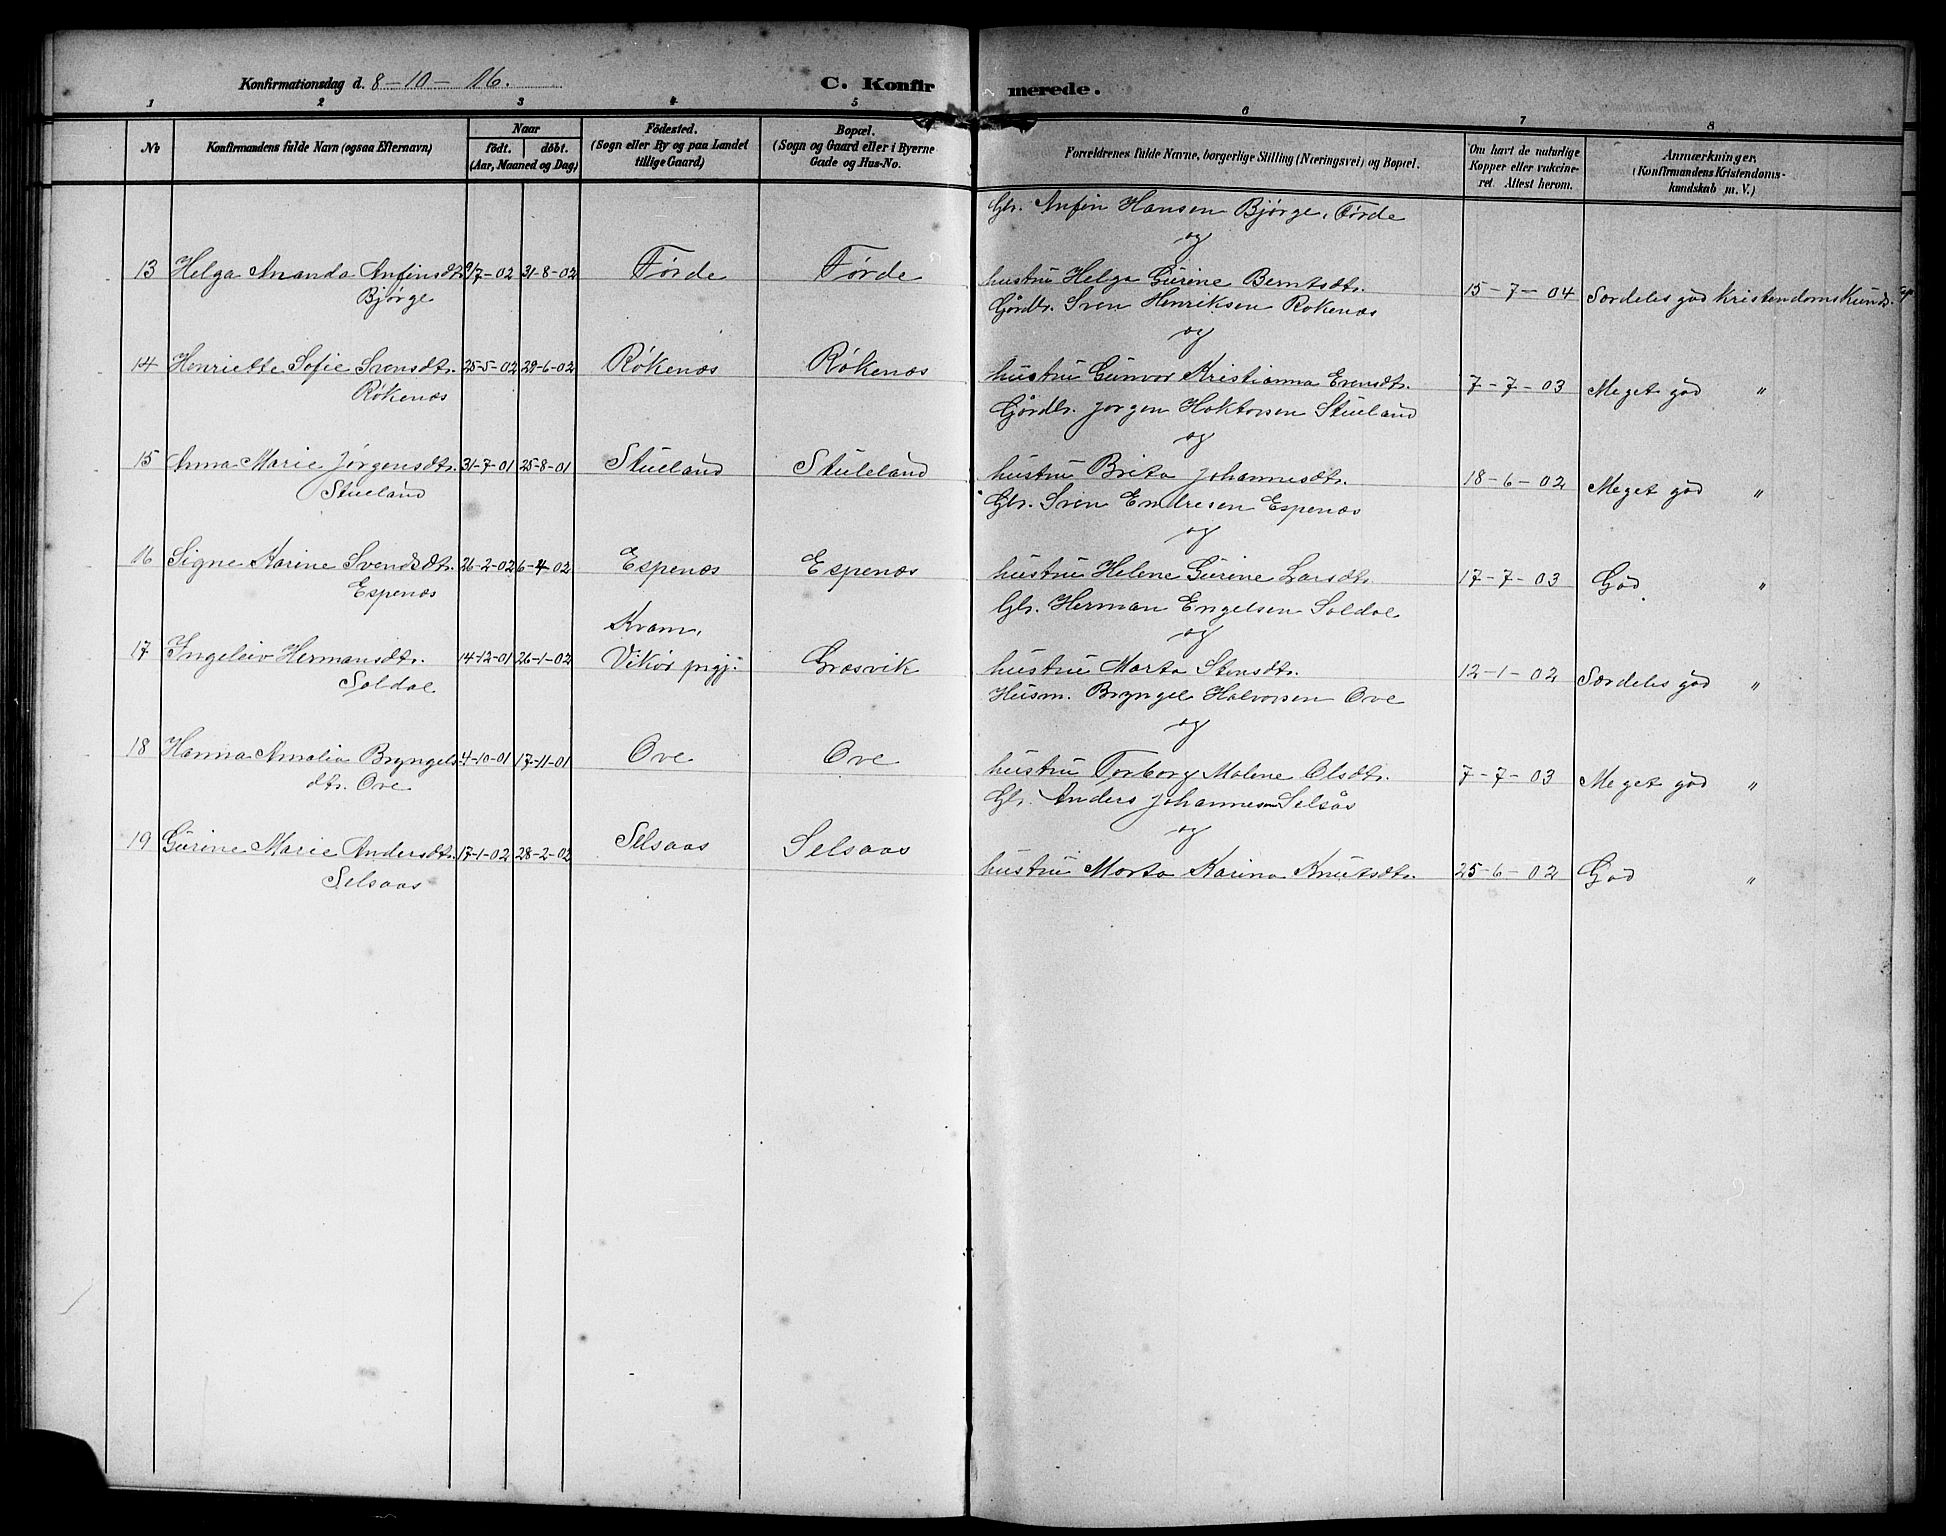 Konfirmationsdag d. 8-10-16.
C. Konfirmerede.
1 2 3 4 5 6 7 8
No
Konfirmandens fulde Navn (ogsaa Efternavn)
Naar
født. døbt.
(Aar, Maaned og Dag)
Fødested.
(Sogn eller By og paa Landet
tillige Gaard)
Bopæl.
(Sogn og Gaard eller i Byerne
Gade og Hus-No.
Forældrenes fulde Navne, borgerlige Stilling (Næringsvei) og Bopæl.
Om havt de naturlige
Kopper eller vakcine-
ret. Attest herom.
Anmærkninger,
(Konfirmandens Kristendoms-
kundskab m. V.)
Gbr. Anfin Hansen Bjørge, Førde
og
13 Helga Ananda Anfinsdtr. 17-02 31-8-02 Førde Førde hustru Helga Gurine Berntsdtr. 15-7-04 Særdeles god Kristendomskunds
Bjørge
Gårdbr. Sven Henriksen Rökenæs
og
14 Henriette Sofie Svensdtr. 25-5-02 29-6-02 Rökenæs Rökenæs hustru Gunvor Kristianna Evensdtr. 7-7-03 Meget god "
Rökenæs
Gårdbr. Jørgen Haktorsen Stueland
og
15 Anna Marie Jørgensdtr. 31-7-01 25-8-01 Stueland Stuleland hustru Brita Johannesdtr. 18-6-02 Meget god "
Stueland
Gbr. Sven Endresen Espenæs
og
16 Signe Karine Svendsdtr. 26-2-02 6-4-02 Espenæs Espenæs hustru Helene Gurine Larsdtr. 17-7-03 God "
Espenæs
Gbr. Herman Engelsen Soldal
og
Kvam,
17 Ingeleiv Hermansdtr. 14-12-01 26-1-02 Vikør prgj. Græsvik hustru Marta Stensdtr. 12-1-02 Særdeles god "
Soldal
Husm. Bryngel Halvorsen Ove
og
18 Hanna Amalia Bryngels 4-10-01 17-11-01 Ove Ove hustru Torborg Malene Olsdtr. 7-7-03 Meget god "
dtr. Ove
Gbr. Anders Johannesen Selsås
og
19 Gurine Marie Andersdtr. 17-1-02 28-2-02 Selsaas Selsaas hustru Marta Karina Knutsdtr. 25-6-02 God "
Selsaas